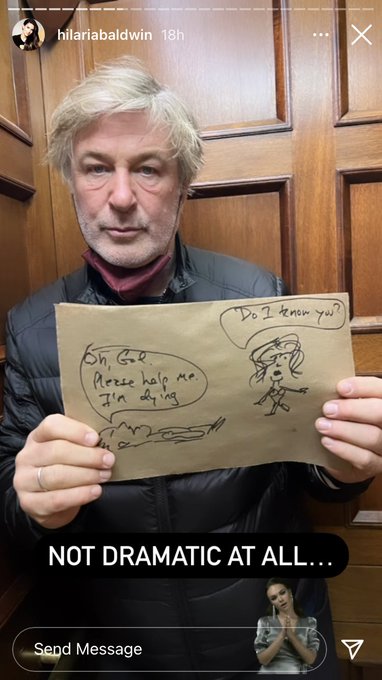 hilariabaldwin 18h
Do I know you?
Oh, God.
Please help me.
I'm dying
NOT DRAMATIC AT ALL...
Send Message